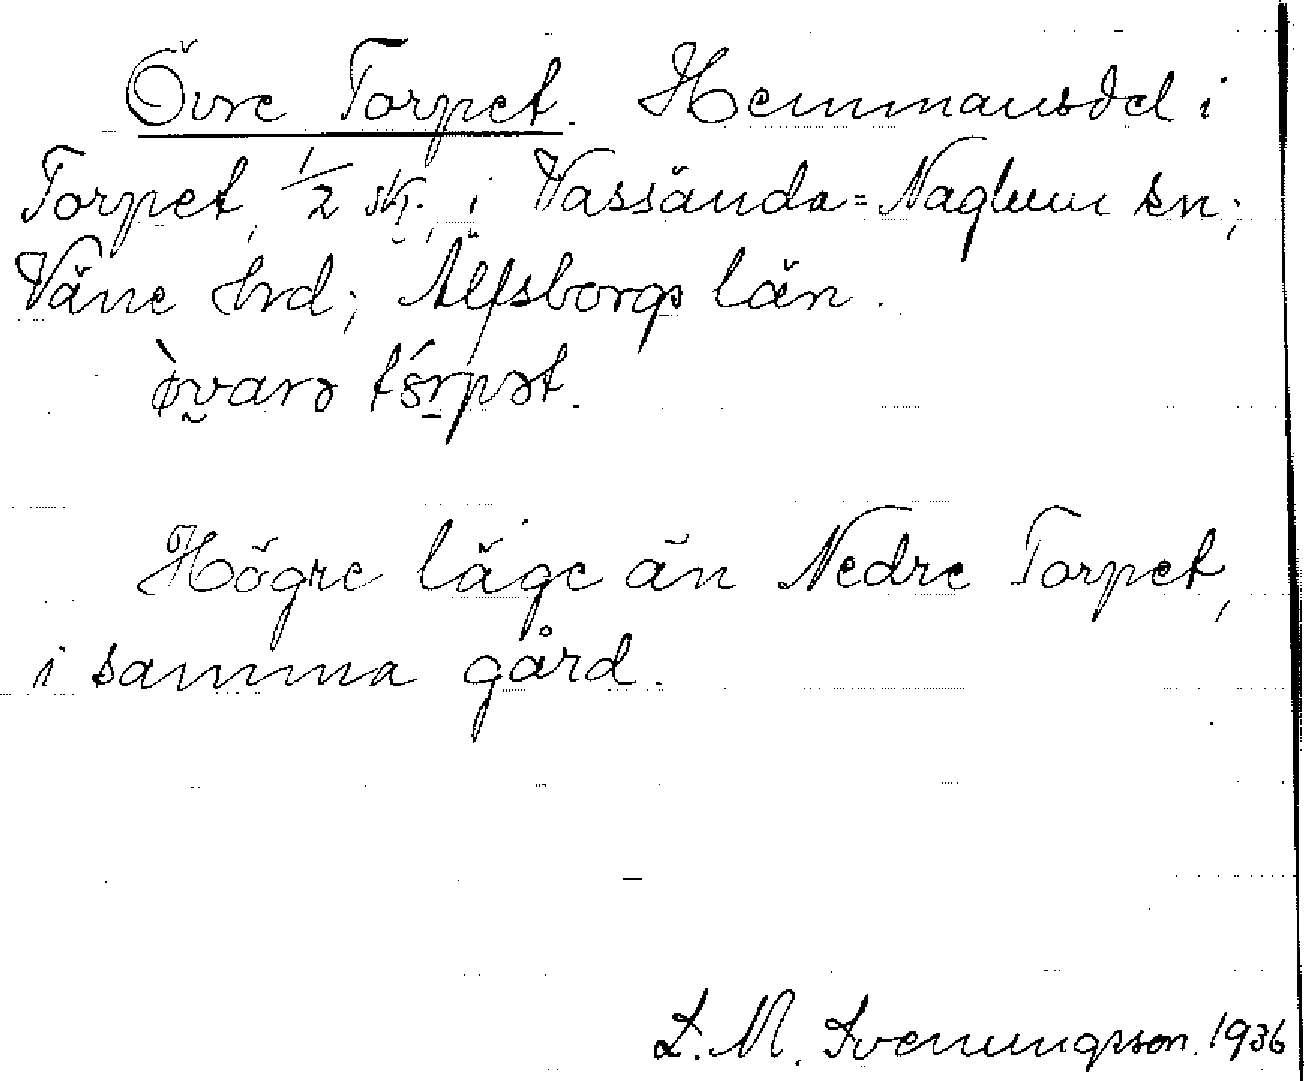 Övre Torpet. Hemmansdel i
Torpet, 1/2 skt. i Vassända-Naglum sn;
Väne hrd; Älfsborgs län.
Högre läge än Nedre Torpet,
i samma gård.
L. M. Svenungsson. 1936